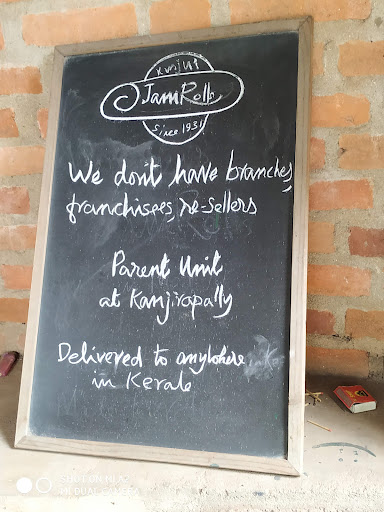 JamRolls
Since 1931
We don't have branches,
franchisees, re-sellers
Parent Unit
at Kanjirapally
Delivered to anywhere
in Kerala
SHOT ON MI A2
MI DUAL CAMERA